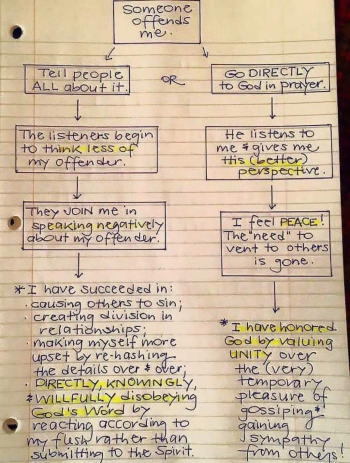 Someone
offends
me.
Tell people
ALL about it.
OR
Go DIRECTLY
to God in prayer.
The listeners begin
to think less of
my offender.
He listens to
me & gives me
His (better)
perspective.
They JOIN me in
speaking negatively
about my offender.
I feel PEACE!
The "need" to
vent to others
is gone.
* I have succeeded in:
· causing others to sin;
· creating division in
relationships;
· making myself more
upset by re-hashing
the details over & over;
· DIRECTLY, KNOWINGLY,
& WILLFULLY disobeying
God's Word by
reacting according to
my flesh rather than
submitting to the Spirit.
* I have honored
God by valuing
UNITY over
the (very)
temporary
pleasure of
gossiping &
gaining
sympathy
from others!